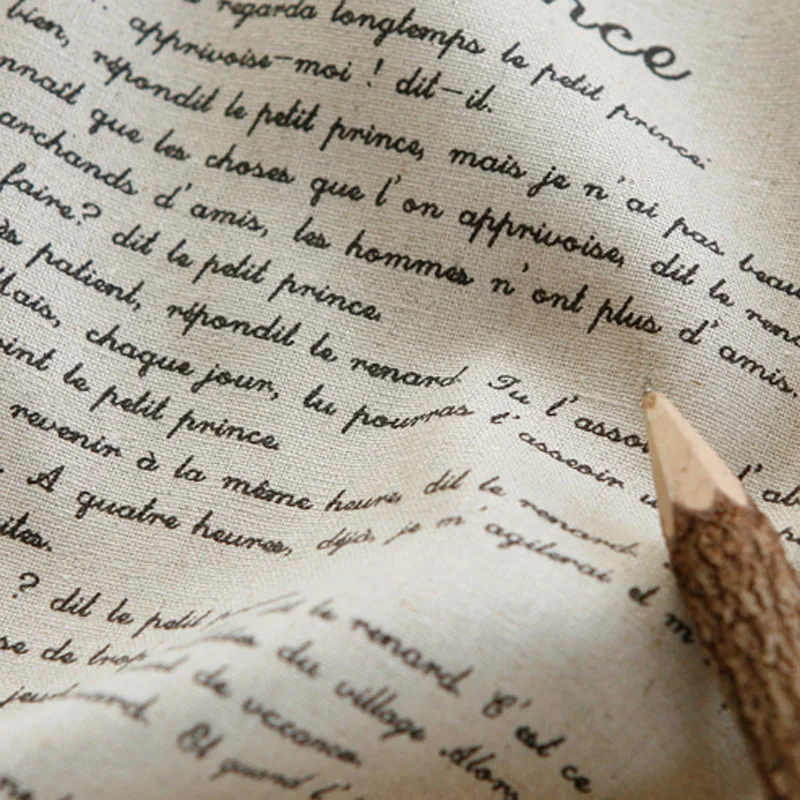 nce
regarda longtemps le petit prince:
apprivoise-moi ! dit-il.
bien, répondit le petit prince, mais je n'ai pas beau
nnaît que les choses que l'on apprivoise, dit le rena
archands d'amis, les hommes n'ont plus d'amis.
faire? dit le petit prince.
ès patient, répondit le renard Tu l'assoi
Mais, chaque jour, tu pourras t'asseoir u
oint le petit prince.
revenir à la même heure, dit le renard.
A quatre heures, déjà, je m'agiterai et m'
ites.
? dit le petit le renard. C'est ce
se de trop du village Alors
jeu de vacance.
Et quand l'